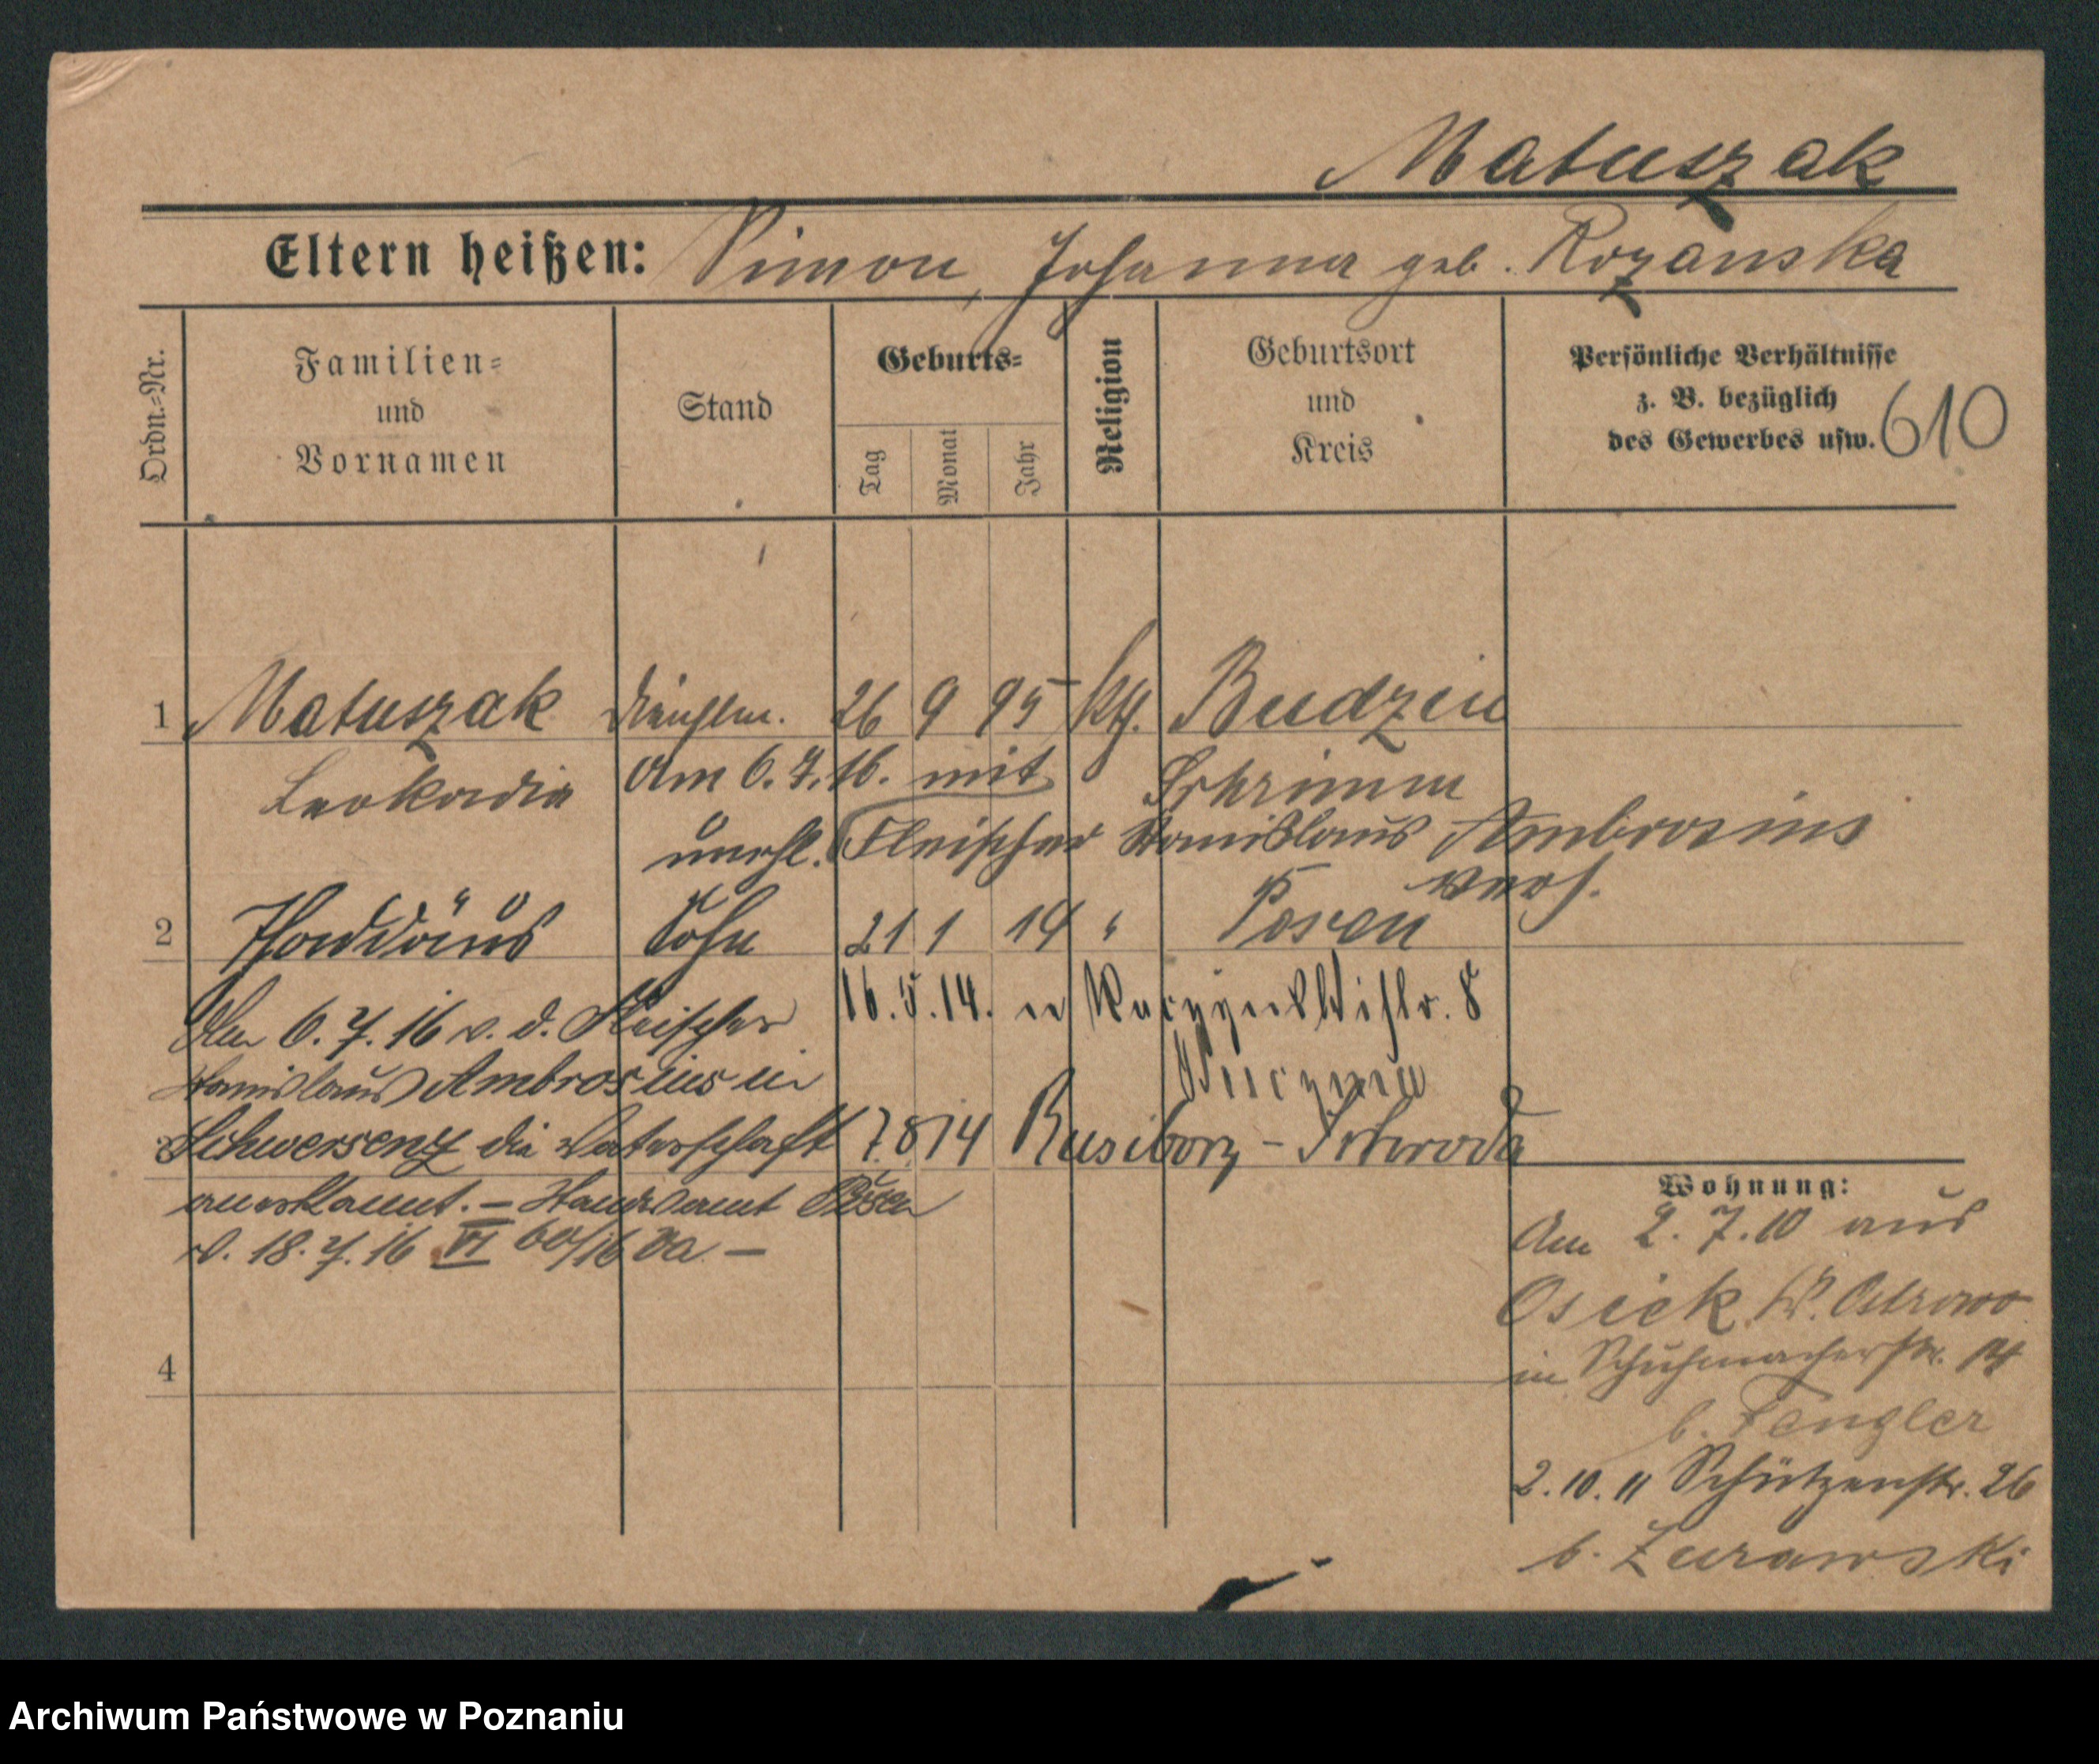 Matuszak
Eltern heißen: Simon, Johanna geb. Rozanska
Ordn.-Nr.
Familien-
und
Vornamen
Stand
Geburts-
Tag
Monat
Jahr
Religion
Geburtsort
und
Kreis
Persönliche Verhältnisse
z. B. bezüglich
des Gewerbes usw.
610
1 Matuszak Dienstm. 26 9 95 kth. Budzin
Leokadia
Am 6. 7. 16. mit
Schrimm
unehl. Fleischer Stanislaus Ambrosius
verh.
2 Thaddäus Sohn 21 1 14 " Posen
16. 5. 14.
8
Am 6. 7. 16 v. d. Fleischer
Stanislaus Ambrosius in
3 Schwersenz die Vaterschaft
7. 8 14 Rusiborz - Schroda
anerkannt. - Standesamt Posen
v. 18. 7. 16 VI 60/16
4
Wohnung:
Am 2. 7. 10 aus
Osiek K. Ostrowo
in Schuhmacherstr.
b. Fengler
2. 10. 11 Schützenstr. 26
b. Zurawski
Archiwum Państwowe w Poznaniu